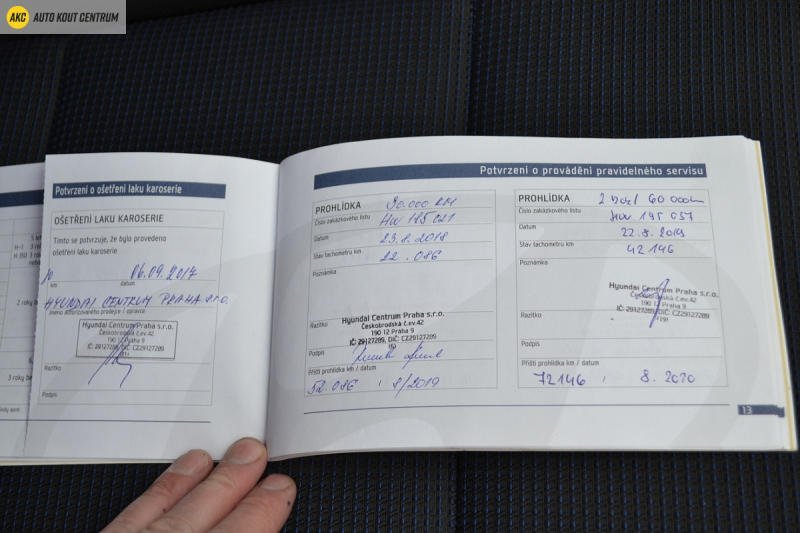 AKC AUTO KOUT CENTRUM
Potvrzení o ošetření laku karoserie
OŠETŘENÍ LAKU KAROSERIE
Tímto se potvrzuje, že bylo provedeno
ošetření laku karoserie
10 06.09.2017
km datum
HYUNDAI CENTRUM PRAHA s.r.o.
Jméno autorizovaného prodejce / opravce
Hyundai Centrum Praha s.r.o.
Českobrodská č.ev.42
190 12 Praha 9
IČ: 29127289, DIČ: CZ29127289
Razítko
Podpis
Potvrzení o provádění pravidelného servisu
PROHLÍDKA 30.000 KM
Číslo zakázkového listu HW 185021
Datum 23.8.2018
Stav tachometru km 22.086
Poznámka
Hyundai Centrum Praha s.r.o.
Českobrodská č.ev.42
190 12 Praha 9
IČ: 29127289, DIČ: CZ29127289
Razítko
Podpis
Příští prohlídka km / datum
52.086 8/2019
PROHLÍDKA 60 000km
Číslo zakázkového listu HW 195 057
Datum 22.8.2019
Stav tachometru km 42 146
Poznámka
Hyundai Centrum Praha s.r.o.
Českobrodská č.ev.42
190 12 Praha 9
IČ: 29127289, DIČ: CZ29127289
Razítko
Podpis
Příští prohlídka km / datum
72146 8. 2020
13